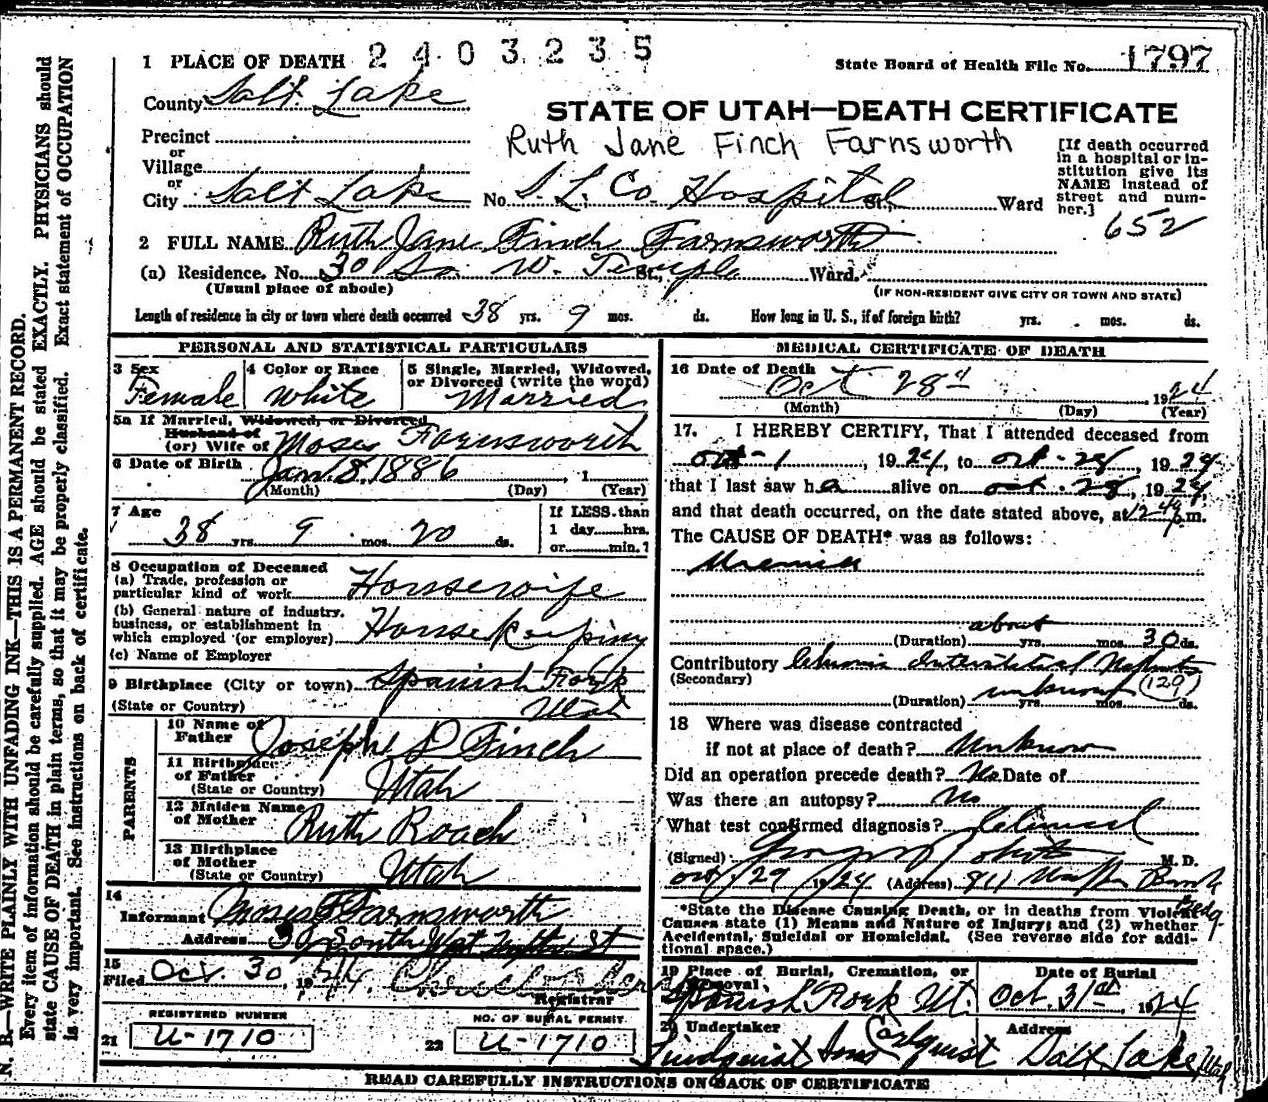 1 PLACE OF DEATH 2403235
State Board of Health File No. 1797
County Salt Lake
STATE OF UTAH—DEATH CERTIFICATE
Precinct
Ruth Jane Finch Farnsworth
or
Village
or
City Salt Lake No. S. L. Co. Hospital St., Ward
[If death occurred
in a hospital or in-
stitution give its
NAME instead of
street and num-
ber.]
652
2 FULL NAME Ruth Jane Finch Farnsworth
(a) Residence. No. 30 So. W. Temple St., Ward.
(Usual place of abode)
(IF NON-RESIDENT GIVE CITY OR TOWN AND STATE)
Length of residence in city or town where death occurred 38 yrs. 9 mos. ds. How long in U. S., if of foreign birth? yrs. mos. ds.
PERSONAL AND STATISTICAL PARTICULARS
3 Sex
Female
4 Color or Race
White
5 Single, Married, Widowed,
or Divorced (write the word)
Married
5a If Married, Widowed, or Divorced
Husband of
(or) Wife of Moses Farnsworth
6 Date of Birth Jan. 8. 1886 , 1
(Month) (Day) (Year)
7 Age
38 yrs. 9 mos. 20 ds.
If LESS than
1 day hrs.
or min.?
8 Occupation of Deceased
(a) Trade, profession or
particular kind of work Housewife
(b) General nature of industry,
business, or establishment in
which employed (or employer) House Keeping
(c) Name of Employer
9 Birthplace (City or town) Spanish Fork
(State or Country) Utah
PARENTS
10 Name of
Father Joseph D Finch
11 Birthplace
of Father
(State or Country) Utah
12 Maiden Name
of Mother Ruth Roach
13 Birthplace
of Mother
(State or Country) Utah
14
Informant Moses F Farnsworth
Address 30 South West Temple St
15
Filed Oct. 30 , 1924
Registrar
REGISTERED NUMBER
21 U-1710
NO. OF BURIAL PERMIT
22 U-1710
MEDICAL CERTIFICATE OF DEATH
16 Date of Death
Oct 28th , 1924
(Month) (Day) (Year)
17. I HEREBY CERTIFY, That I attended deceased from
Oct - 1 , 1924, to Oct - 28, 1924
that I last saw her alive on Oct. 28, 1924,
and that death occurred, on the date stated above, at p.m.
The CAUSE OF DEATH* was as follows:
Uremia
(Duration) about yrs. mos. 30 ds.
Contributory Chronic Interstitial Nephritis
(Secondary)
(Duration) unknown yrs. mos. (129) ds.
18 Where was disease contracted
if not at place of death? Unknown
Did an operation precede death? No Date of
Was there an autopsy? No
What test confirmed diagnosis? Clinical
(Signed) M. D.
Oct 29 1924 (Address) 911 Bldg
*State the Disease Causing Death, or in deaths from Violent
Causes state (1) Means and Nature of Injury; and (2) whether
Accidental, Suicidal or Homicidal. (See reverse side for addi-
tional space.)
19 Place of Burial, Cremation, or
Removal
Spanish Fork Ut.
Date of Burial
Oct. 31st , 1924
20 Undertaker
Lindquist Sons Carlquist
Address
Salt Lake Utah
READ CAREFULLY INSTRUCTIONS ON BACK OF CERTIFICATE
N. B.—WRITE PLAINLY WITH UNFADING INK—THIS IS A PERMANENT RECORD.
Every item of information should be carefully supplied. AGE should be stated EXACTLY. PHYSICIANS should
state CAUSE OF DEATH in plain terms, so that it may be properly classified. Exact statement of OCCUPATION
is very important. See instructions on back of certificate.